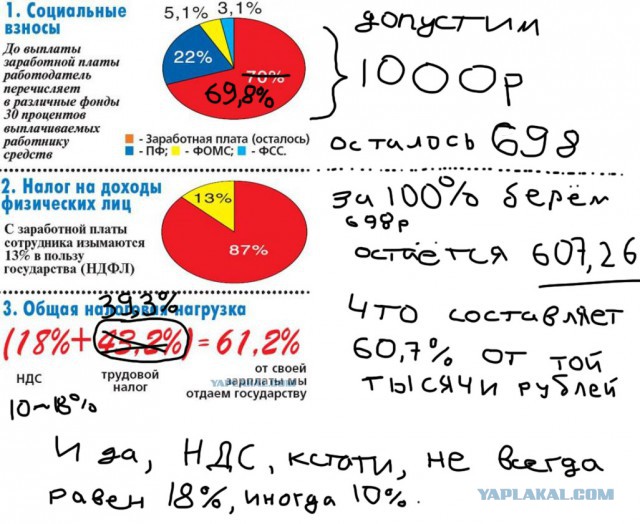 1. Социальные
взносы
До выплаты
заработной платы
работодатель
перечисляет
в различные фонды
30 процентов
выплачиваемых
работнику
средств
5,1%
3,1%
22%
70%
69,8%
- Заработная плата (осталось)
- ПФ; - ФОМС; - ФСС.
допустим
1000р
осталось 698
2. Налог на доходы
физических лиц
С заработной платы
сотрудника изымаются
13% в пользу
государства (НДФЛ)
13%
87%
за 100% берём
698р
остаётся 607,26
3. Общая налоговая нагрузка
39,3%
(18%+43,2%)=61,2%
НДС
трудовой
налог
от своей
зарплаты мы
отдаем государству
YAPLAKAL.COM
10~18%
что составляет
60,7% от той
тысячи рублей
И да, НДС, кстати, не всегда
равен 18%, иногда 10%.
YAPLAKAL.COM